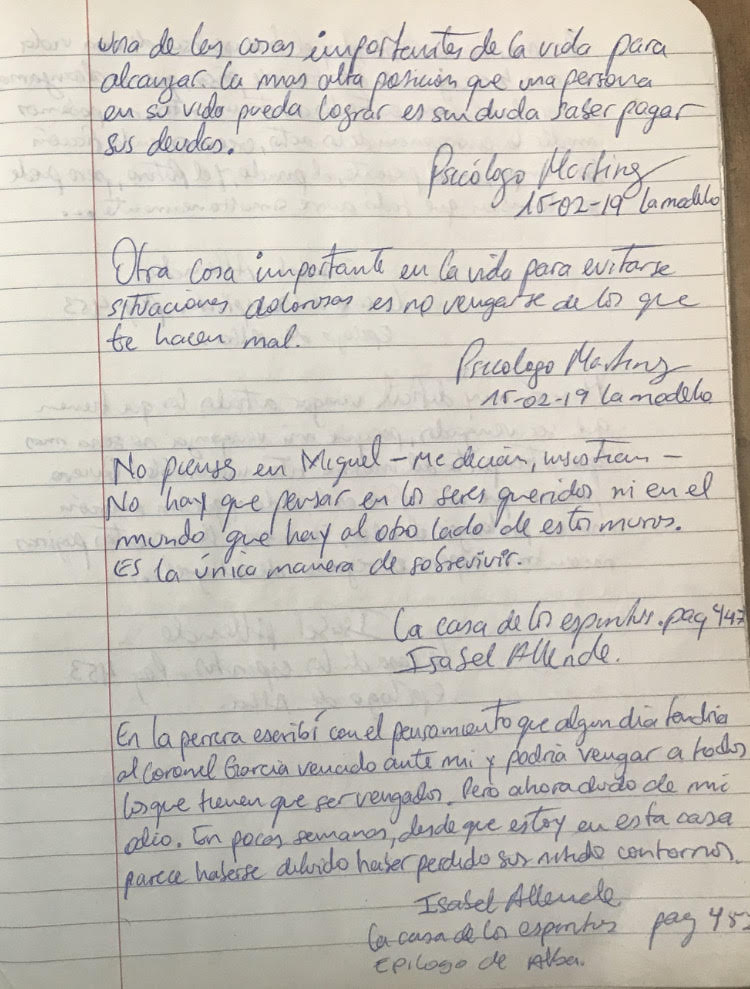 Una de las cosas importantes de la vida para
alcanzar la mas alta posición que una persona
en su vida pueda lograr es sin duda saber pagar
sus deudas.
Psicólogo Martinz
15-02-19 La modelo
Otra cosa importante en la vida para evitarse
situaciones dolorosas es no vengarse de los que
te hacen mal.
Psicologo Martinz
15-02-19 La modelo
No pienses en Miguel – me decian, insistian –
No hay que pensar en los seres queridos ni en el
mundo que hay al otro lado de estos muros.
Es la única manera de sobrevivir.
La casa de los espiritus. pag 447
Isabel Allende.
En la perrera escribí con el pensamiento que algun dia tendria
al Coronel Garcia vencido ante mi y podria vengar a todos
los que tienen que ser vengados. Pero ahora dudo de mi
odio. En pocas semanas, desde que estoy en esta casa
parece haberse diluido haber perdido sus nitido contornos.
Isabel Allende.
La casa de los espiritus pag 452
Epilogo de Alba.